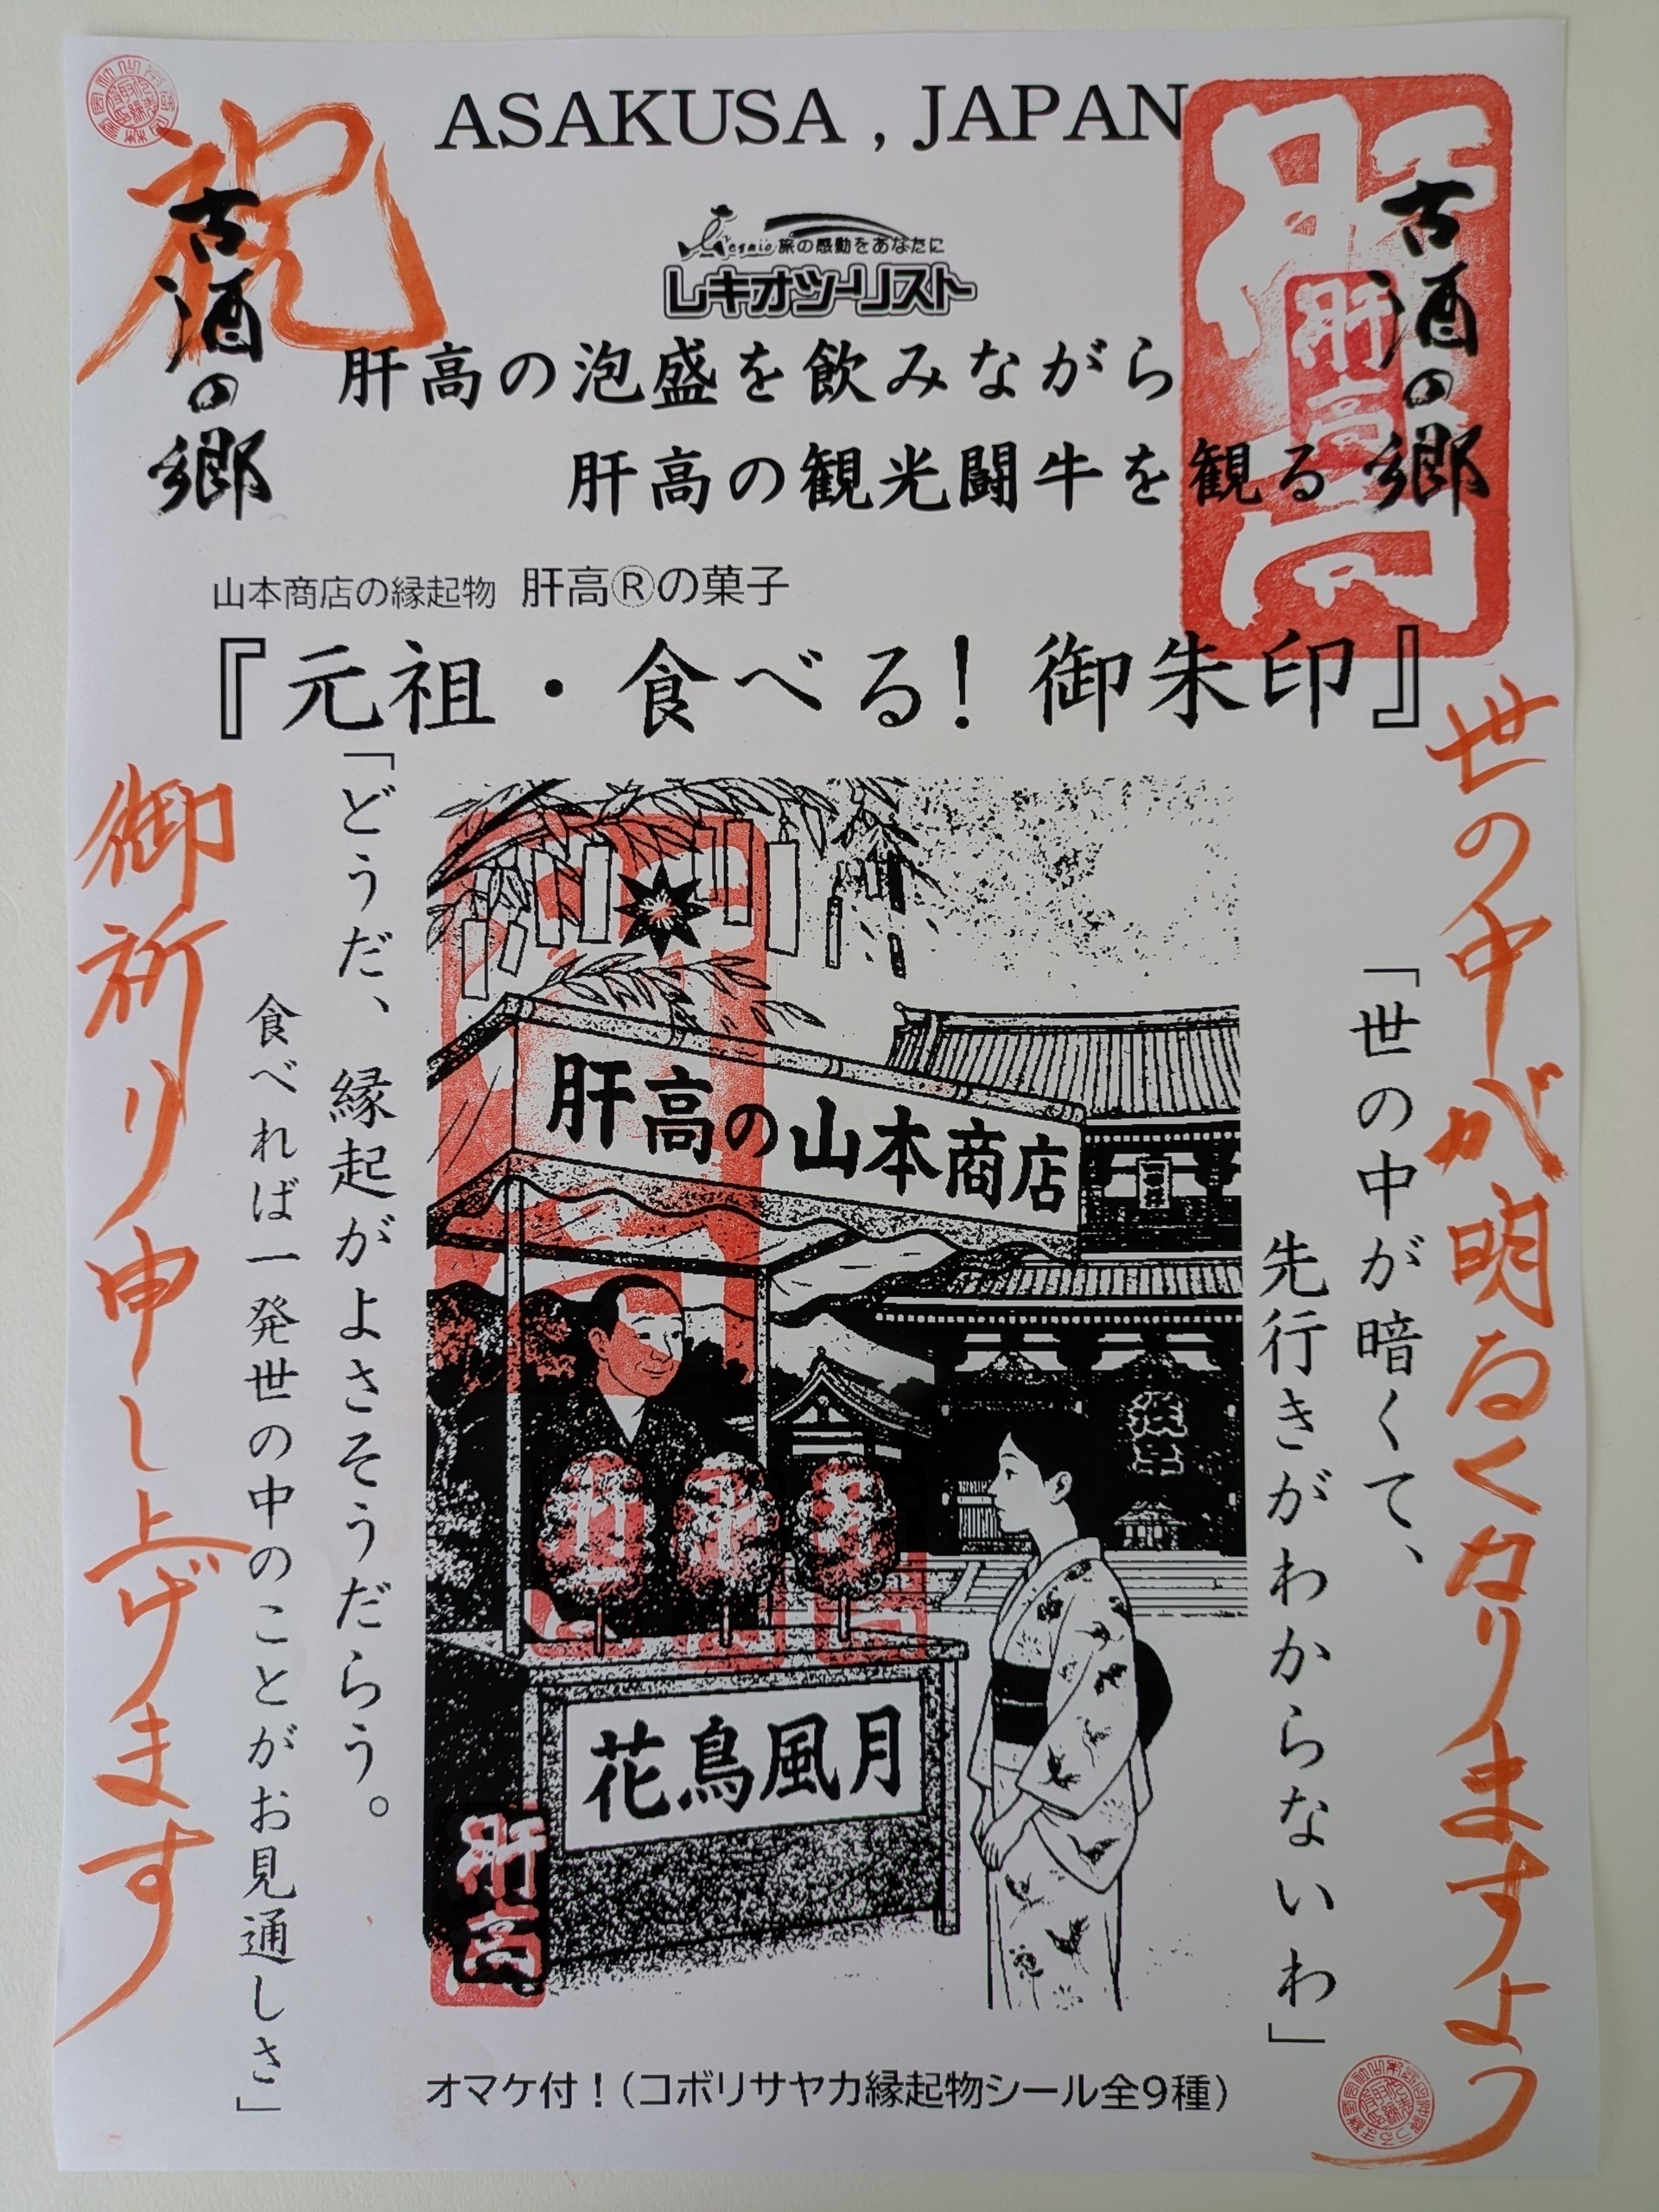 ASAKUSA , JAPAN
祝
古酒の郷
古酒の郷
肝高
肝高
旅の感動をあなたに
レキオツーリスト
肝高の泡盛を飲みながら
肝高の観光闘牛を観る
山本商店の縁起物 肝高Ⓡの菓子
『元祖・食べる! 御朱印』
世の中が明るくなりますよう
御祈り申し上げます
「世の中が暗くて、
先行きがわからないわ」
「どうだ、縁起がよさそうだらう。
食べれば一発世の中のことがお見通しさ」
肝高の山本商店
花鳥風月
肝高
オマケ付!(コボリサヤカ縁起物シール全9種)